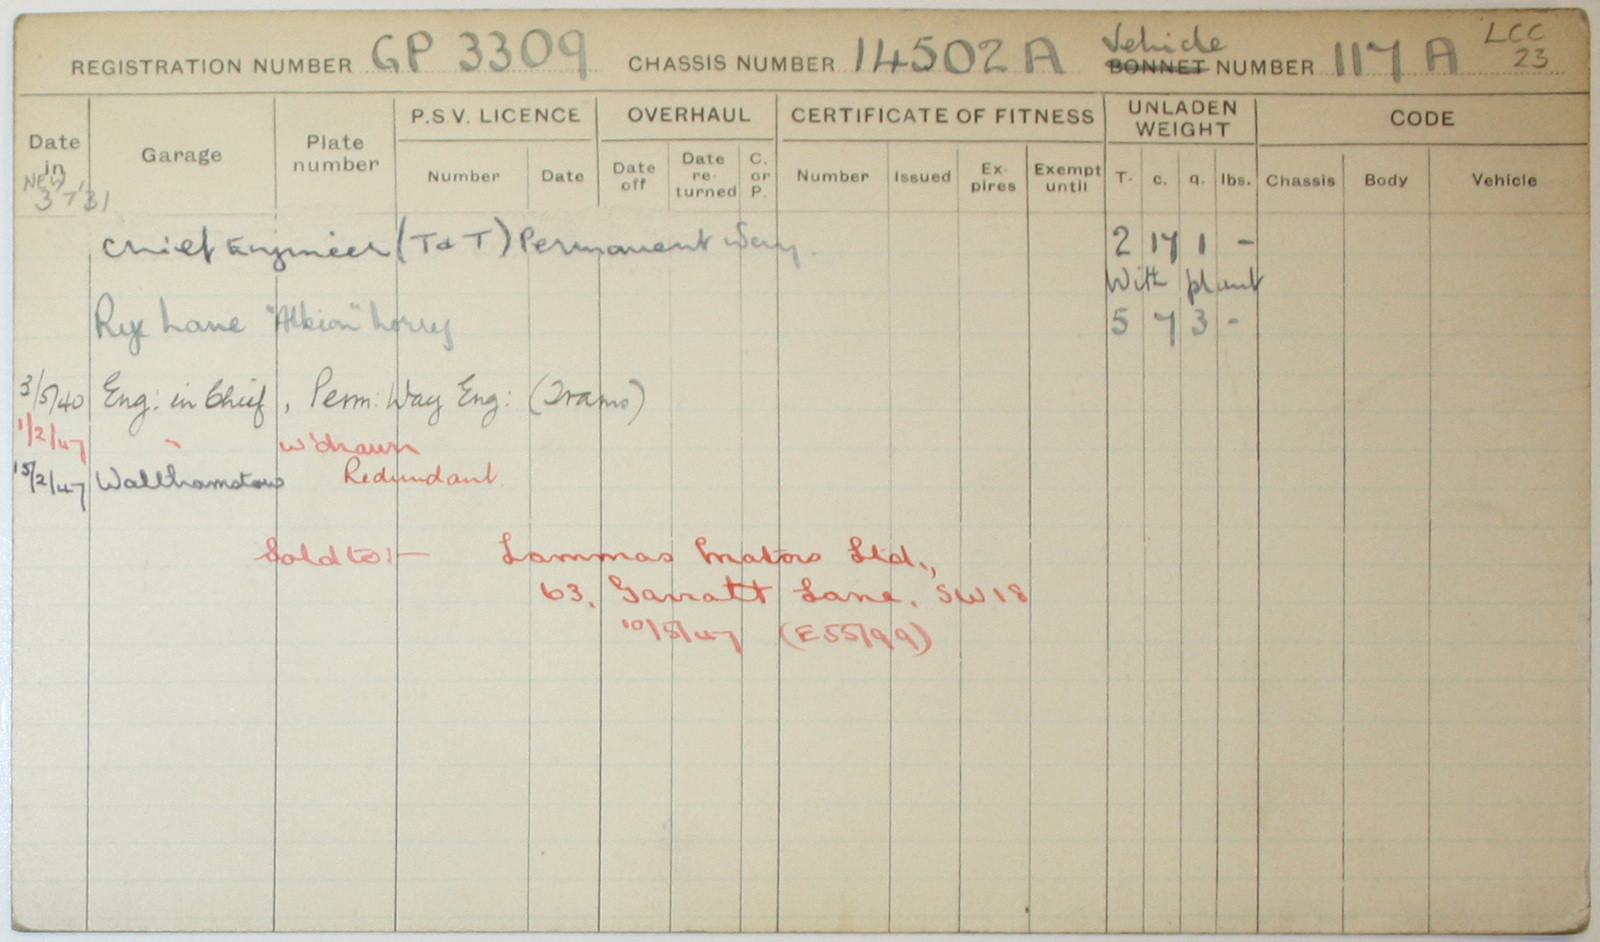 REGISTRATION NUMBER GP 3309 CHASSIS NUMBER 14502 A Vehicle BONNET NUMBER 117 A LCC 23
P.S.V. LICENCE OVERHAUL CERTIFICATE OF FITNESS UNLADEN WEIGHT CODE
Date in Garage Plate number Number Date Date off Date re-turned C. or P. Number Issued Ex-pires Exempt until T. c. q. lbs. Chassis Body Vehicle
NEW 3 7 '31
Chief Engineer (T & T) Permanent Way. 2 17 1 -
With plant
Rye Lane "Albion" Lorry 5 7 3 -
3/5/40 Eng: in Chief, Perm: Way Eng: (Trams)
1/2/47 " w'drawn
15/2/47 Walthamstow Redundant.
Sold to:- Lammas Motors Ltd.,
63, Garratt Lane, SW18
10/5/47 (E55/99)